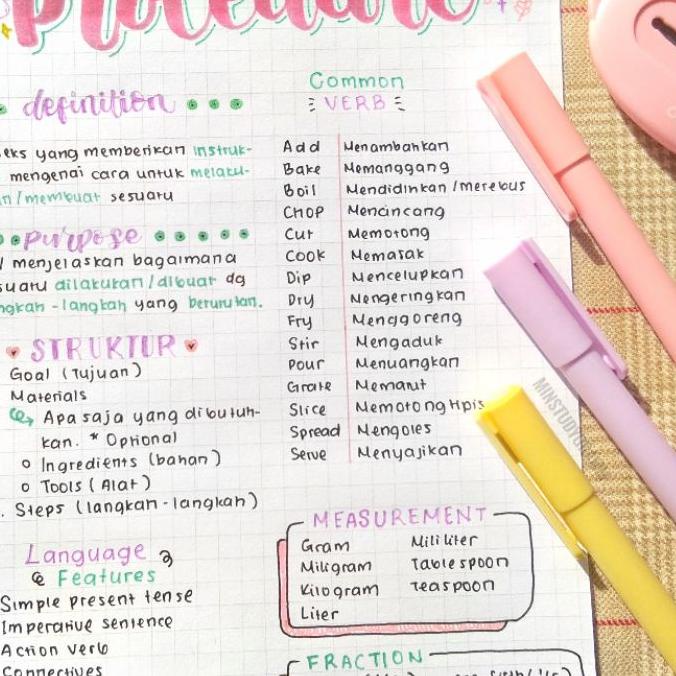 Procedure
definition
teks yang memberikan instruk-
mengenai cara untuk melaku-
n/membuat sesuatu
purpose
menjelaskan bagaimana
suatu dilakukan/dibuat dg
langkah-langkah yang berurutan.
STRUKTUR
Goal (Tujuan)
Materials
Apa saja yang dibutuh-
kan. * Optional
Ingredients (bahan)
Tools (Alat)
Steps (langkah-langkah)
Language
& Features
Simple present tense
Imperative sentence
Action verb
Connectives
Common
VERB
Add Menambahkan
Bake Memanggang
Boil Mendidihkan/merebus
Chop Mencincang
Cut Memotong
Cook Memasak
Dip Mencelupkan
Dry Mengeringkan
Fry Menggoreng
Stir Mengaduk
Pour Menuangkan
Grate Memarut
Slice Memotong tipis
Spread Mengoles
Serve Menyajikan
MEASUREMENT
Gram Mililiter
Miligram Tablespoon
Kilogram teaspoon
Liter
FRACTION